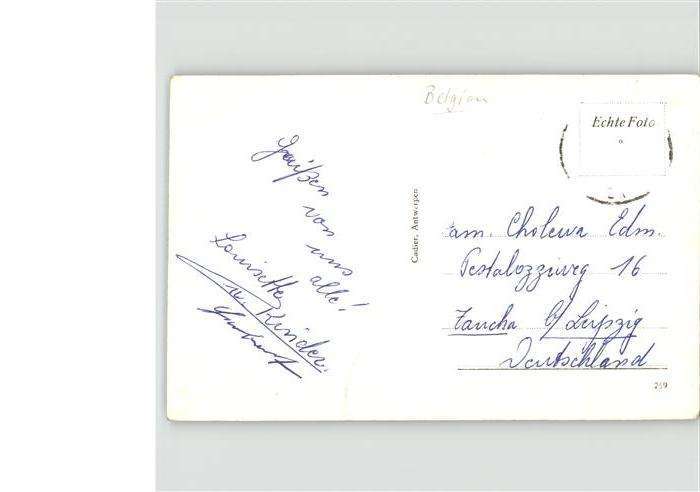 Belgien
Echte Foto
Grüßen
von
uns
alle!
Louisette
u. Kinder.
Cadier, Antwerpen
Fam. Cholewa Edm.
Pestalozziweg 16
Taucha b/Leipzig
Deutschland
269